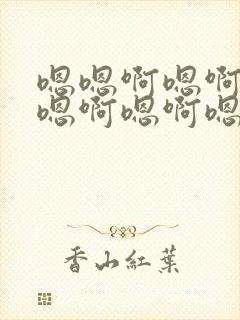 嗯嗯啊嗯啊
嗯啊嗯啊嗯
香山紅葉